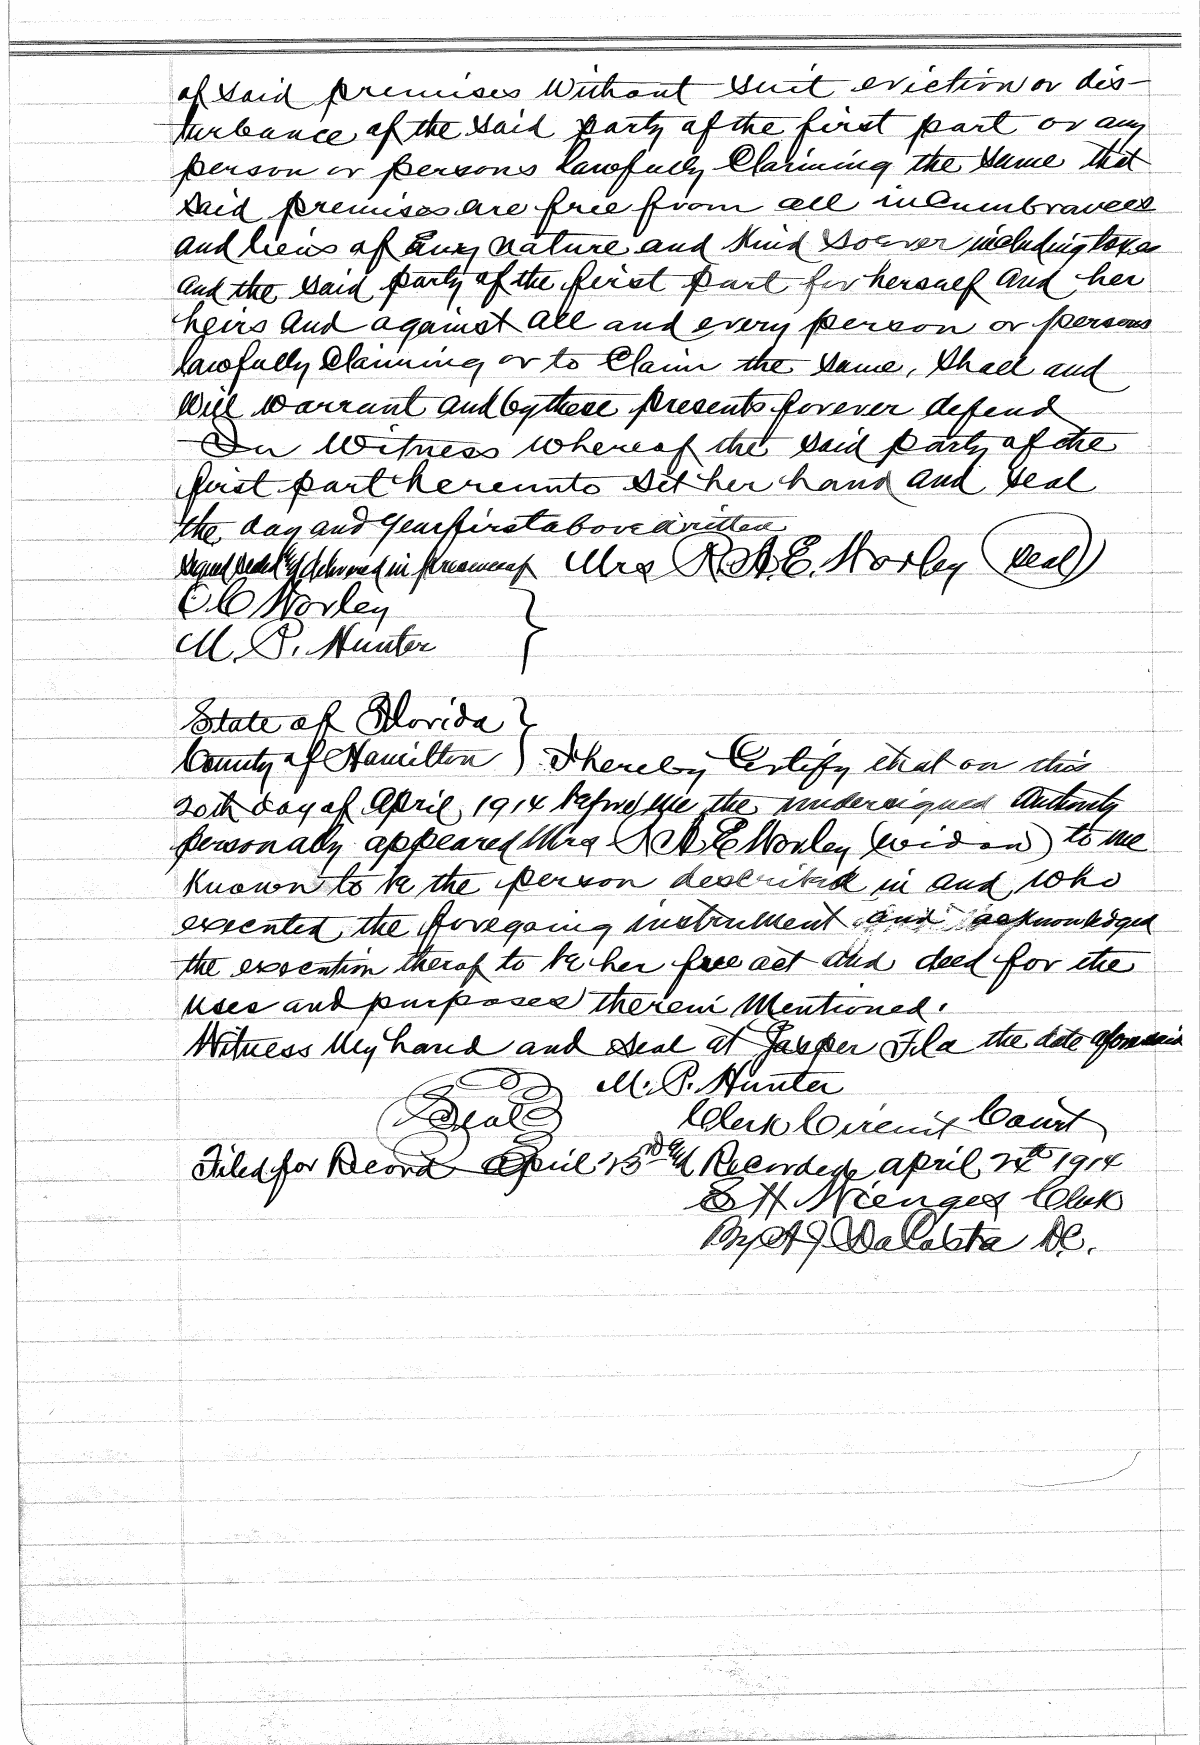 of said premises without suit eviction or dis-
turbance of the said party of the first part or any
person or persons lawfully Claiming the same that
said premises are free from all incumbrances
and liens of any nature and kind soever including taxes
and the said party of the first part for herself and her
heirs and against all and every person or persons
lawfully Claiming or to Claim the same, shall and
will warrant and by these presents forever defend
In Witness whereof the said party of the
first part hereunto set her hand and seal
the day and year first above written
Signed sealed & delivered in presence of Mrs R A E Worley (Seal)
C C Worley
M. P. Hunter
State of Florida
County of Hamilton } I hereby Certify that on this
20th day of April 1914 before me the undersigned Authority
personally appeared Mrs R A E Worley (widow) to me
known to be the person described in and who
executed the foregoing instrument and acknowledged
the execution therof to be her free act and deed for the
uses and purposes therein Mentioned.
Witness My hand and seal at Jasper Fla the date aforesaid
M. P. Hunter
Seal Clerk Circuit Court
Filed for Record April 23rd and Recorded April 24th 1914
Clerk
By A J DaCosta D.C.